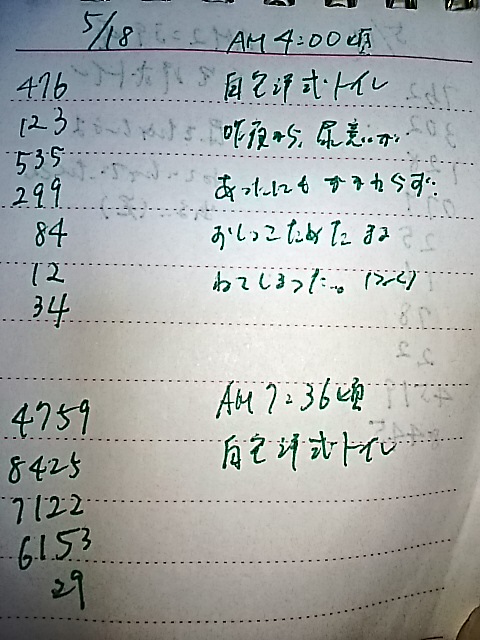 5/18 AM 4:00頃
476 自宅洋式トイレ
123 昨夜から、尿意が
535 あったにもかかわらず
299
84 おしっこためたまま
12 ねてしまった…。
34
4759 AM 7:36頃
8425 自宅洋式トイレ
7122
6153
29